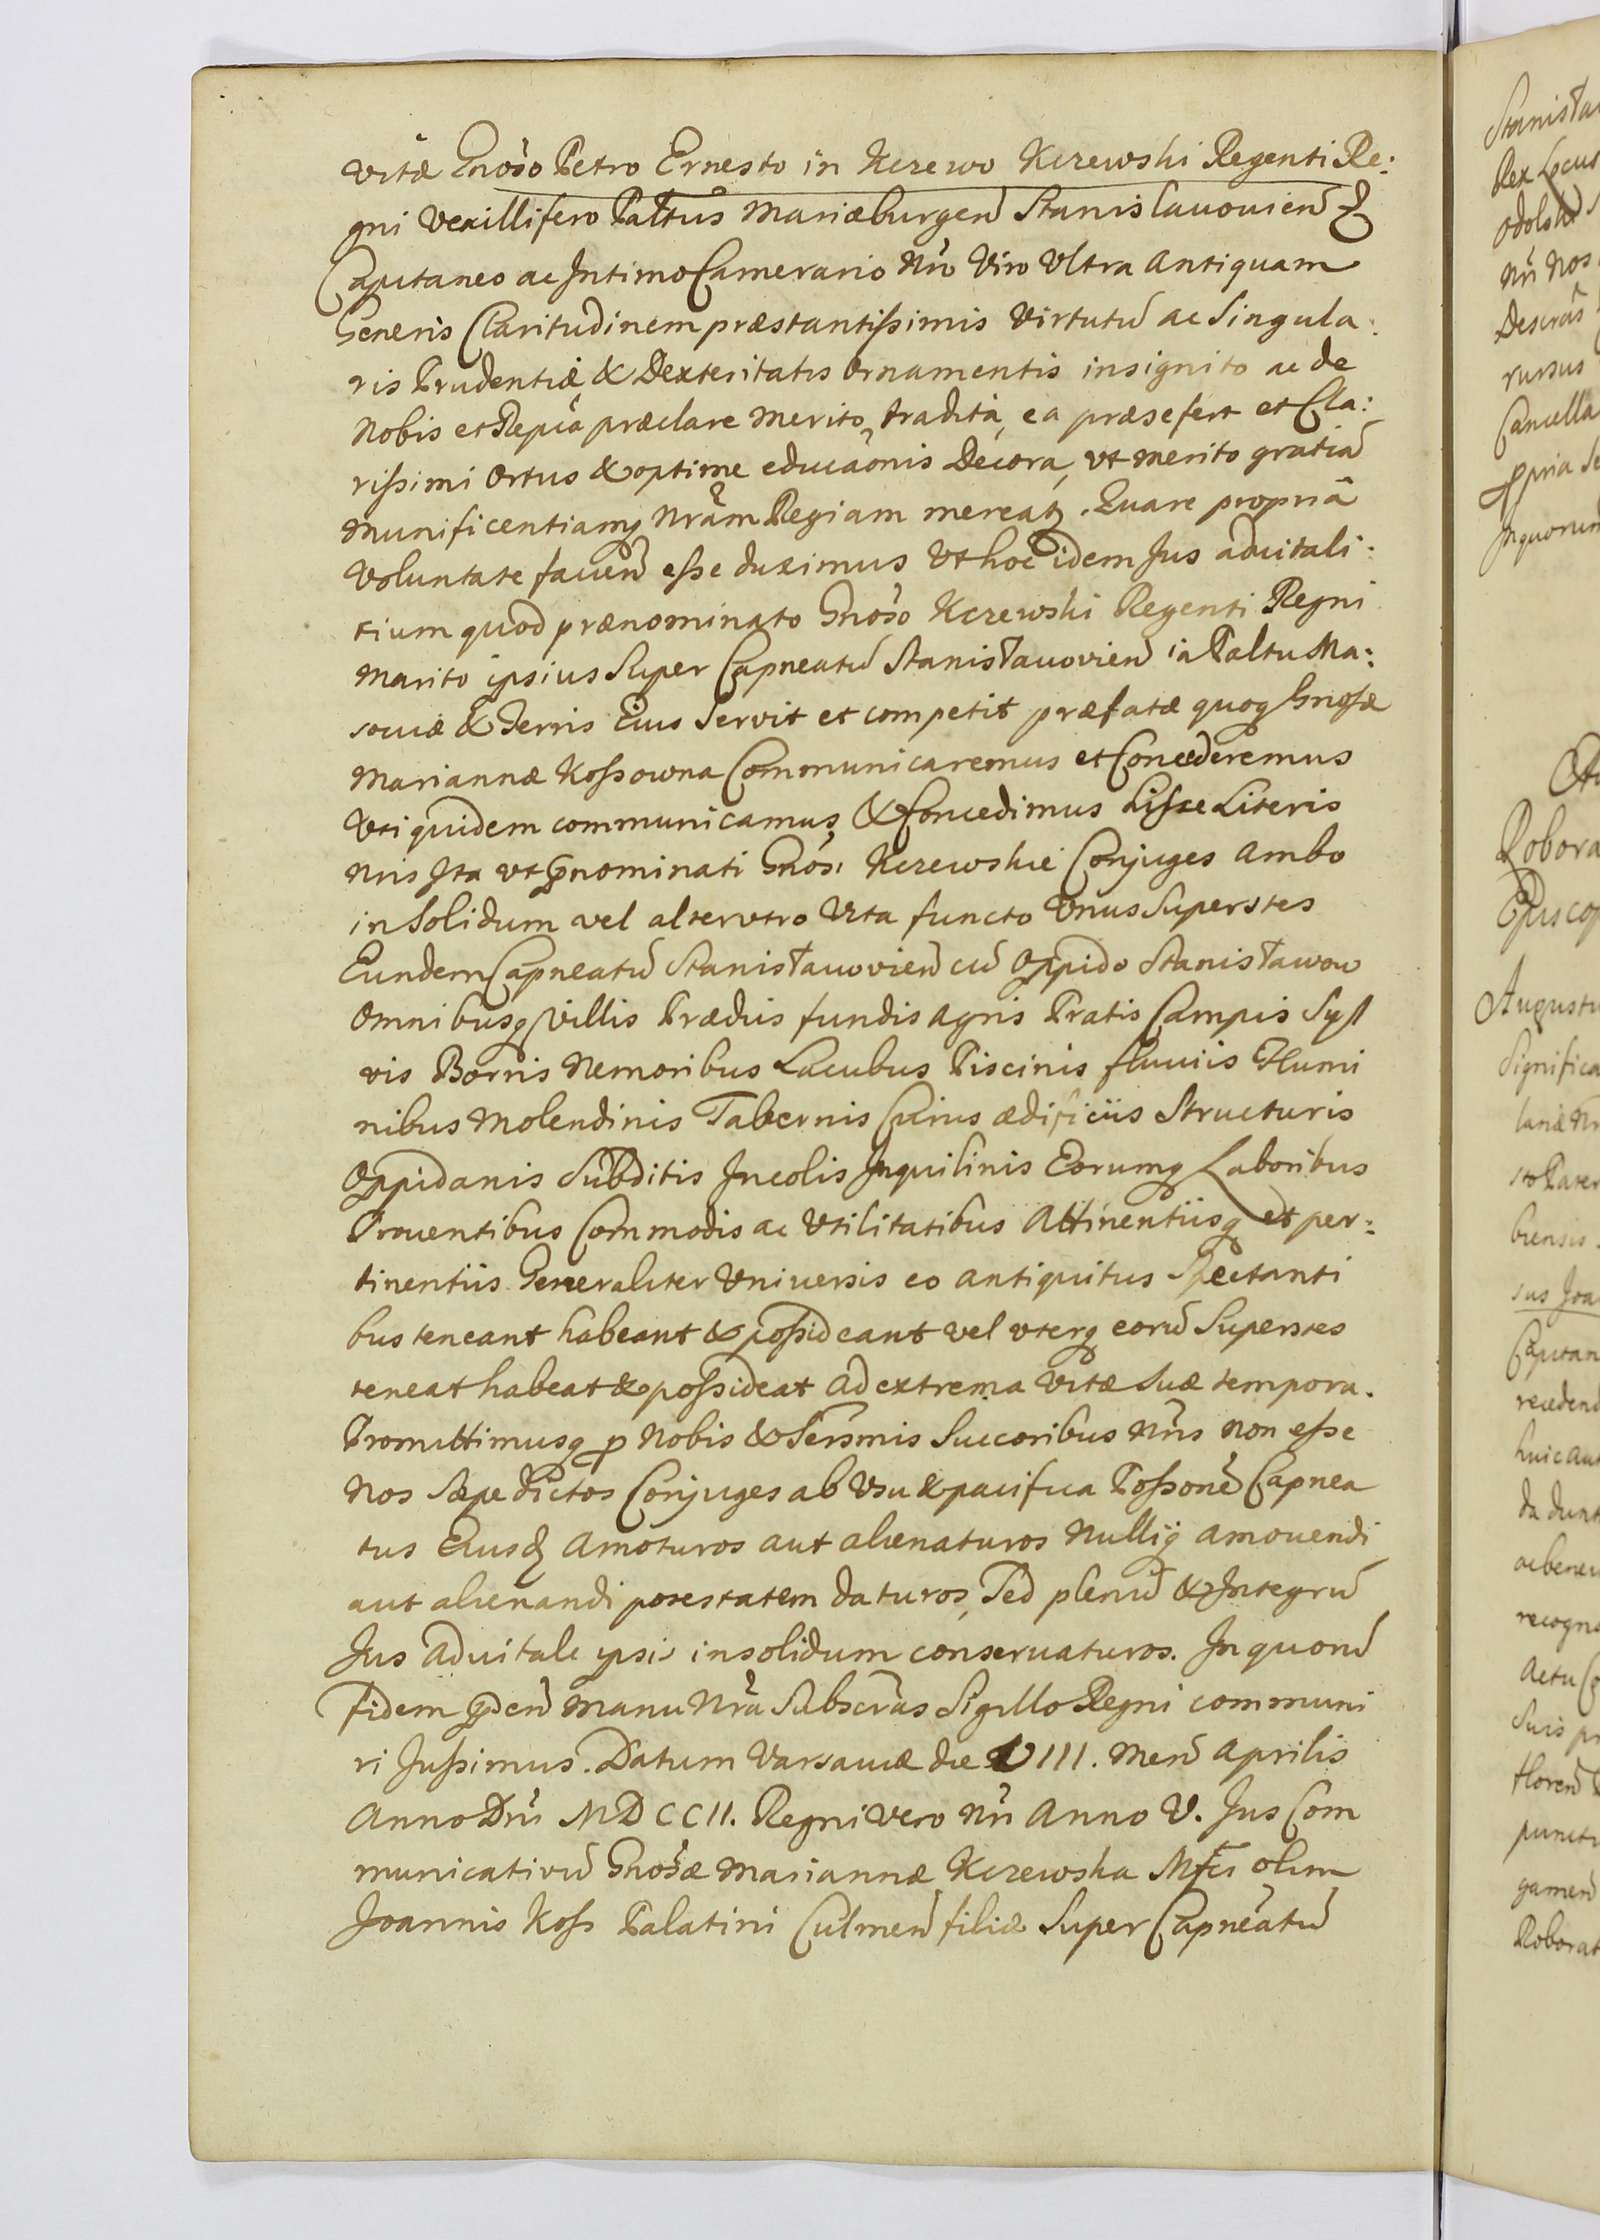 vitæ Gnoso Petro Ernesto in Kczewo Kczewski Regenti Re:
gni Vexillifero Paltus Mariæburgen Stanislauouien &
Capitaneo ac Intimo Camerario Nro Viro Vltra Antiquam
Generis Claritudinem præstantissimis Virtutũ ac Singula:
ris Prudentiæ & Dexteritatis Ornamentis insignito ac de
Nobis et Repca præclare Merito, tradita, ea præsefert et Cla:
rissimi Ortus & optime educaonis Decora, vt merito gratiã
Munificentiamq Nram Regiam mereatur. Quare propriâ
Voluntate fauen esse duximus Vt hoc idem Jus aduitali:
tium quod prænominato Gnoso Kczewski Regenti Regni
Marito ipsius Super Capneatũ Stanisławovien in Paltu Ma:
souiæ & Terris Eius Servit et competit præfatæ quoq Gnosæ
Mariannæ Kossowna Communicaremus et Concederemus
Vti quidem communicamus, & Concedimus hisce Literis
Nris Ita vt prnominati Gnosi Kczewskie Conjuges Ambo
in Solidum vel alterutro Vita functo Vnus Superstes
Eundem Capneatũ Stanisławovien cũ Oppido Stanisławow
Omnibusq Villis Prædiis fundis Agris Pratis Campis Syl
vis Borris Nemoribus Lacubus Piscinis fluuiis Flumi
nibus Molendinis Tabernis Curiis ædificiis Structuris
Oppidanis Subditis Incolis Inquilinis Eorumq Laboribus
Prouentibus Commodis ac Vtilitatibus Attinentiisq et per:
tinentiis Generaliter Vniuersis eo antiquitus Spectanti
bus teneant habeant & possideant vel vterq eorũ Superstes
teneat habeat & possideat Ad extrema Vitæ Suæ tempora.
Promittimusq p Nobis & Sersmis Succoribus Nris Non esse
Nos Sæpedictos Conjuges ab Vsu & pacifica Possone Capnea
tus Eiusd Amoturos aut alienaturos Nulliq amouendi
aut alienandi potestatem daturos, Sed plenũ & Integrũ
Jus Aduitale ipsis insolidum conseruaturos. In quorũ
Fidem prden Manu Nra Subscras Sigillo Regni communi
ri Jussimus. Datum Varsauiæ die VIII. Men Aprilis
Anno Dni MDCCII. Regni vero Nri Anno V. Jus Com
municativũ Gnosæ Mariannæ Kczewska Mfci olim
Joannis Koss Palatini Culmen filiæ Super Capneatũ